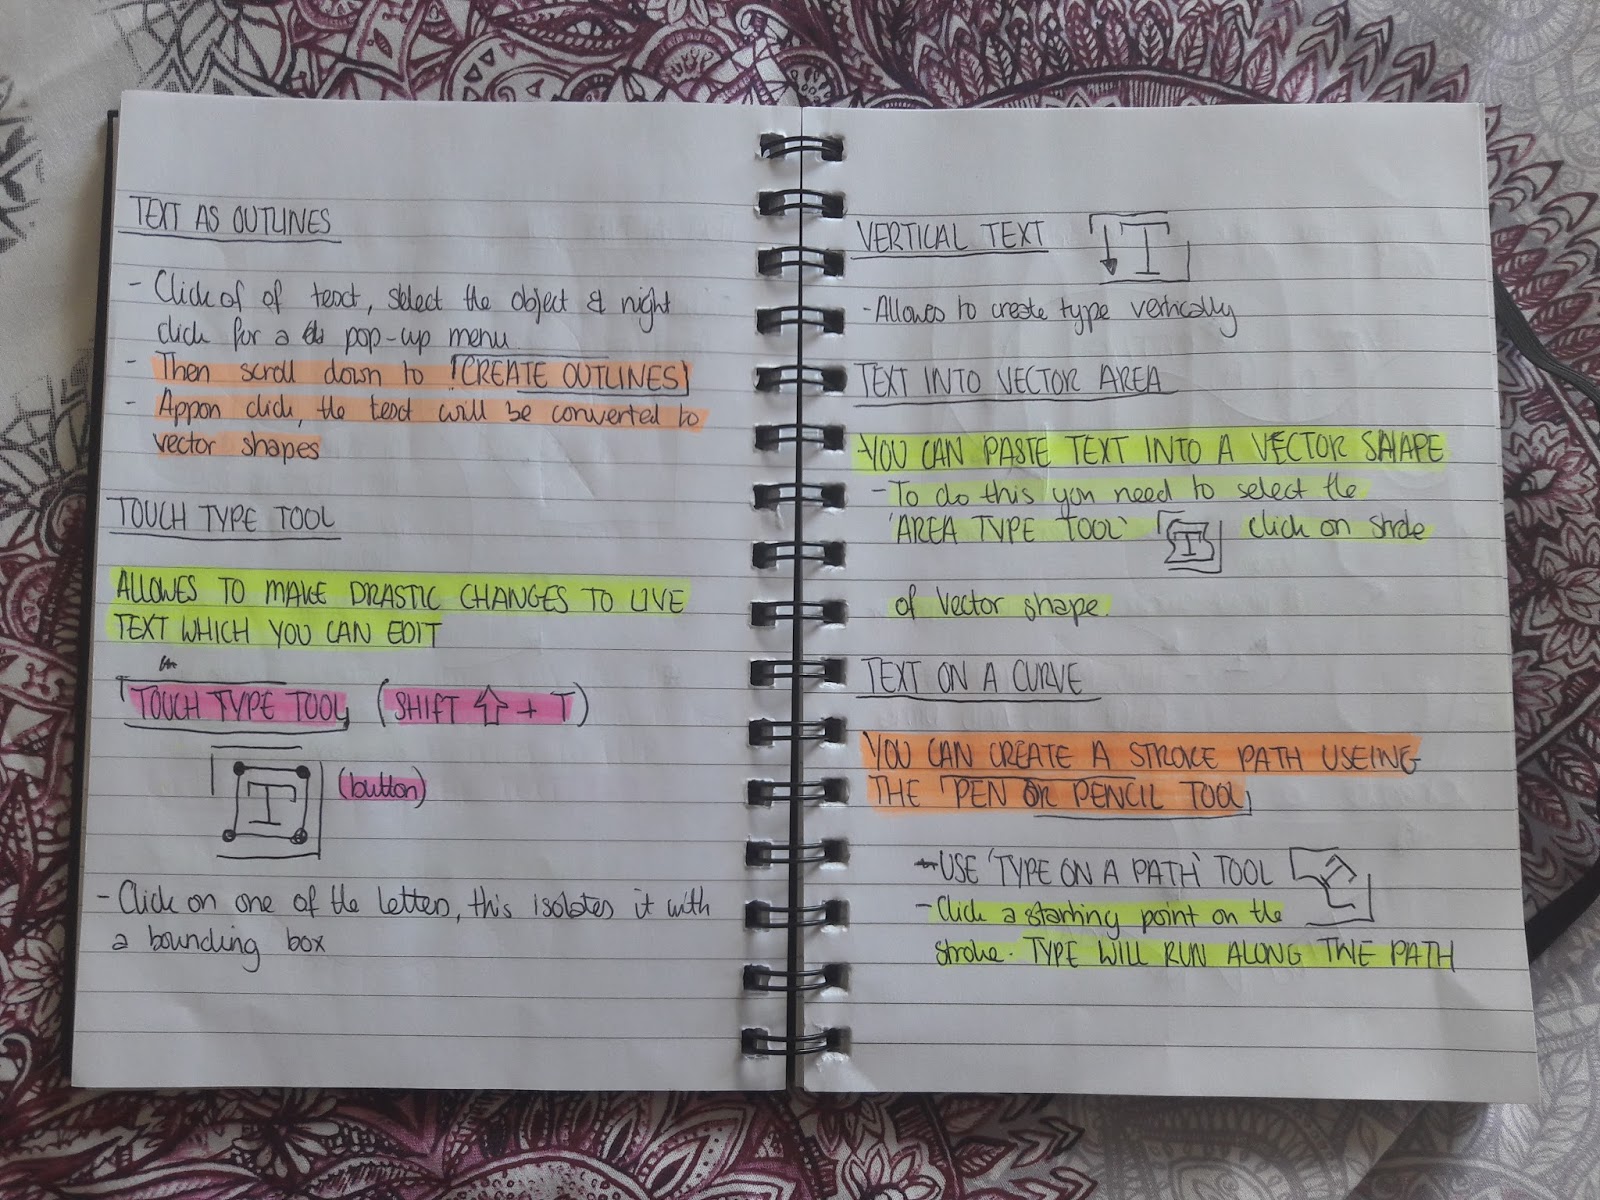 TEXT AS OUTLINES
- Click of of text, select the object & right
click for a pop-up menu
- Then scroll down to CREATE OUTLINES
- Appon click, the text will be converted to
vector shapes
TOUCH TYPE TOOL
ALLOWES TO MAKE DRASTIC CHANGES TO LIVE
TEXT WHICH YOU CAN EDIT
TOUCH TYPE TOOL (SHIFT ⇧ + T)
T (button)
- Click on one of the letters, this isolates it with
a bounding box
VERTICAL TEXT T
- Allowes to create type vertically
TEXT INTO VECTOR AREA
- YOU CAN PASTE TEXT INTO A VECTOR SHAPE
- To do this you need to select the
'AREA TYPE TOOL' T click on
of vector shape.
TEXT ON A CURVE
YOU CAN CREATE A STROKE PATH USEING
THE PEN OR PENCIL TOOL
- USE 'TYPE ON A PATH' TOOL
- Click a starting point on the
stroke. TYPE WILL RUN ALONG THE PATH